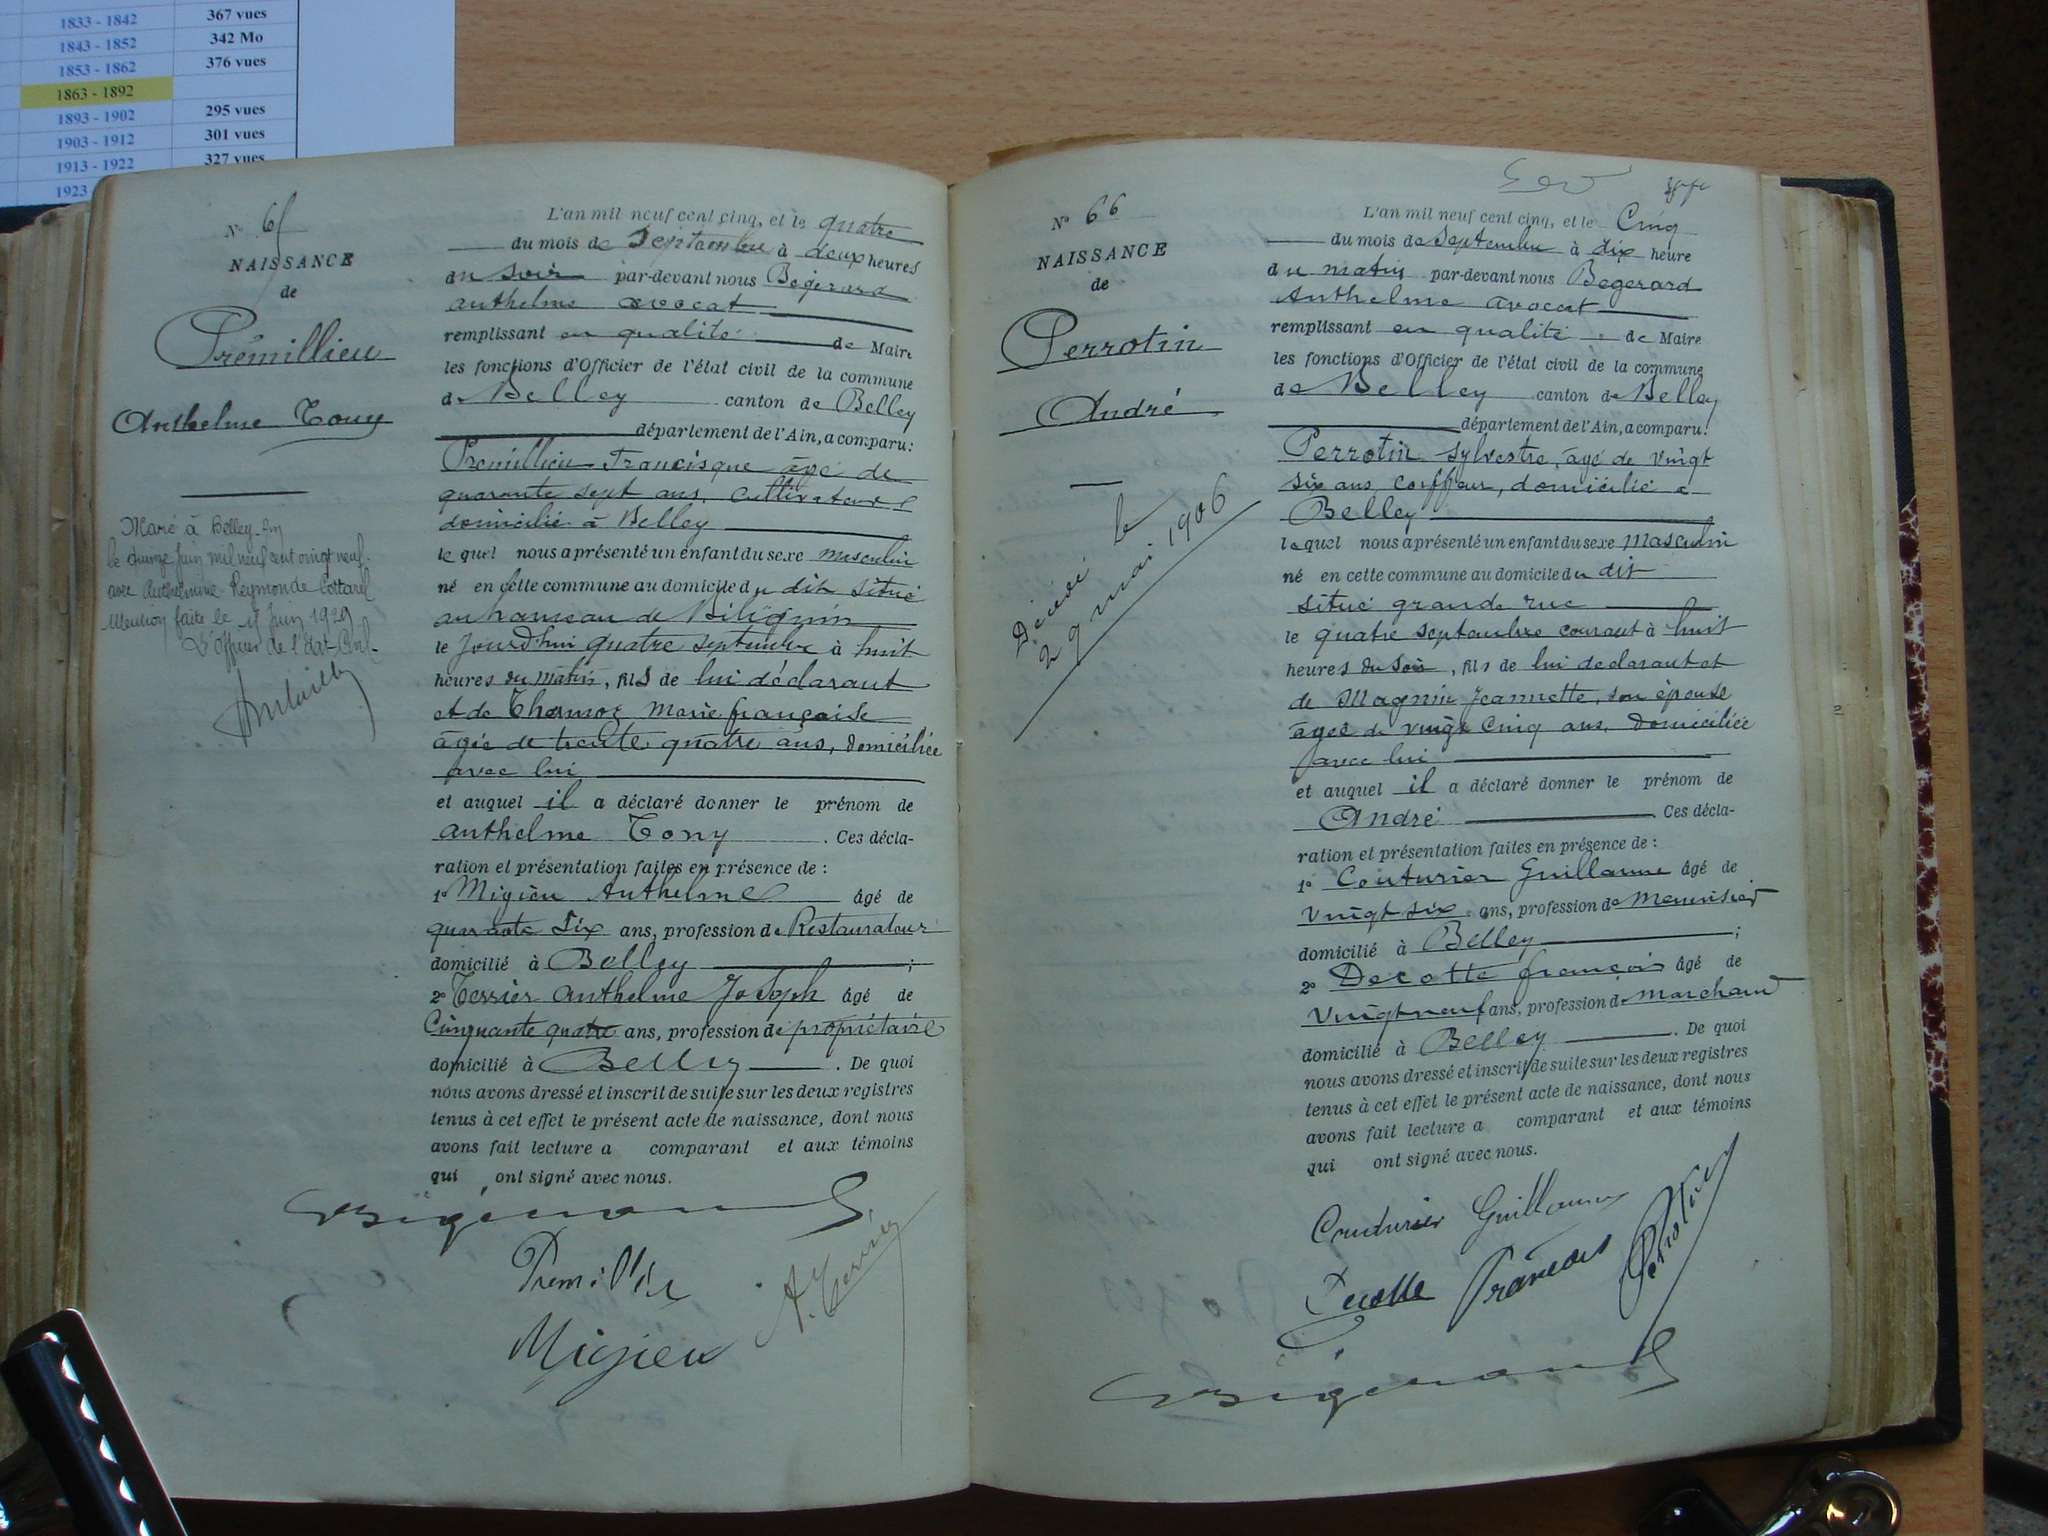 1833 - 1842 367 vues
1843 - 1852 342 Mo
1853 - 1862 376 vues
1863 - 1892
1893 - 1902 295 vues
1903 - 1912 301 vues
1913 - 1922 327 vues
1923
N° 65
NAISSANCE
de
Prémillieu
Anthelme Tony
Marié à Belley
le quinze Juin mil neuf cent vingt neuf
avec Anthelmine Reymonde Cottarel
Mention faite le 15 Juin 1929
L'officier de l'Etat Civil
L'an mil neuf cent cinq, et le quatre
du mois de Septembre à deux heures
du soir par-devant nous Bégerard
anthelme avocat
remplissant en qualité de Maire
les fonctions d'Officier de l'état civil de la commune
de Belley canton de Belley
département de l'Ain, a comparu:
Prémillieu Francisque âgé de
quarante sept ans, cultivateur
domicilié à Belley
lequel nous a présenté un enfant du sexe masculin
né en cette commune au domicile du dit situé
au hameau de Bilignin
le Jourd'hui quatre septembre à huit
heures du matin, fils de lui déclarant
et de Thamoz Marie françoise
âgée de trente quatre ans, domiciliée
avec lui
et auquel il a déclaré donner le prénom de
anthelme Tony . Ces décla-
ration et présentation faites en présence de :
1° Migieu Anthelme âgé de
quarante six ans, profession de Restaurateur
domicilié à Belley ;
2° Terrier anthelme Joseph âgé de
Cinquante quatre ans, profession de propriétaire
domicilié à Belley . De quoi
nous avons dressé et inscrit de suite sur les deux registres
tenus à cet effet le présent acte de naissance, dont nous
avons fait lecture a comparant et aux témoins
qui ont signé avec nous.
Bégerard
Prémillieu
A. Terrier
Migieu
N° 66
NAISSANCE
de
Perrotin
André
Décédé le
29 mai 1906
L'an mil neuf cent cinq, et le Cinq
du mois de Septembre à dix heure
du matin par-devant nous Bégerard
Anthelme avocat
remplissant en qualité de Maire
les fonctions d'Officier de l'état civil de la commune
de Belley canton de Belley
département de l'Ain, a comparu:
Perrotin Sylvestre, âgé de vingt
six ans, coiffeur, domicilié à
Belley
lequel nous a présenté un enfant du sexe masculin
né en cette commune au domicile du dit
situé grande rue
le quatre septembre courant à huit
heures du soir, fils de lui déclarant et
de Magnin Jeannette, son épouse
âgée de vingt cinq ans, domiciliée
avec lui
et auquel il a déclaré donner le prénom de
André Ces décla-
ration et présentation faites en présence de :
1° Couturier Guillaume âgé de
vingt six ans, profession de menuisier
domicilié à Belley ;
2° Decotte françois âgé de
vingt neuf ans, profession de marchand
domicilié à Belley . De quoi
nous avons dressé et inscrit de suite sur les deux registres
tenus à cet effet le présent acte de naissance, dont nous
avons fait lecture a comparant et aux témoins
qui ont signé avec nous.
Couturier Guillaume
Perrotin
Decotte François
Bégerard